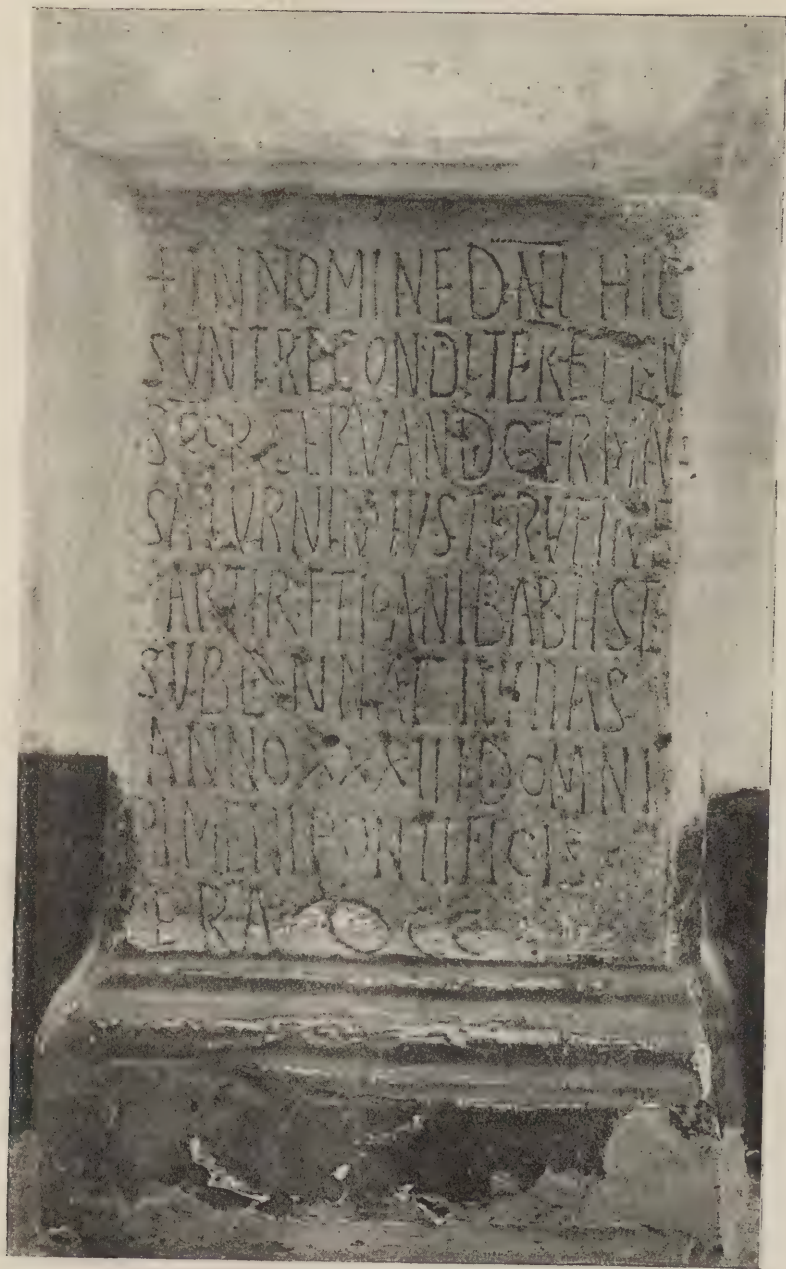 + IN NOMINE DNI HIC
SVNT RECONDITE RELIQV
SCOR SERVAND GERMAN
SATVRNIN IVSTE RVFIN
ARTIR ET IOANI BABTIST
SVB
ANNO XXXIII DOMNI
PIMENI PONTIFICIS
ERA DCC